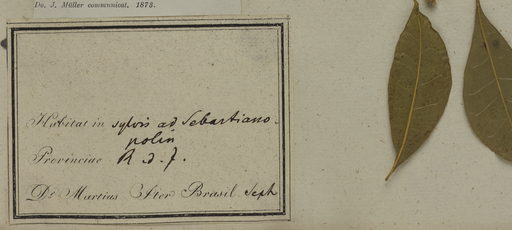 Do. J. Müller communicat, 1873.
Habitat in sylvis ad Sebastiano
polin
Provinciae R. d. J.
Dr Martius Iter Brasil. Seph